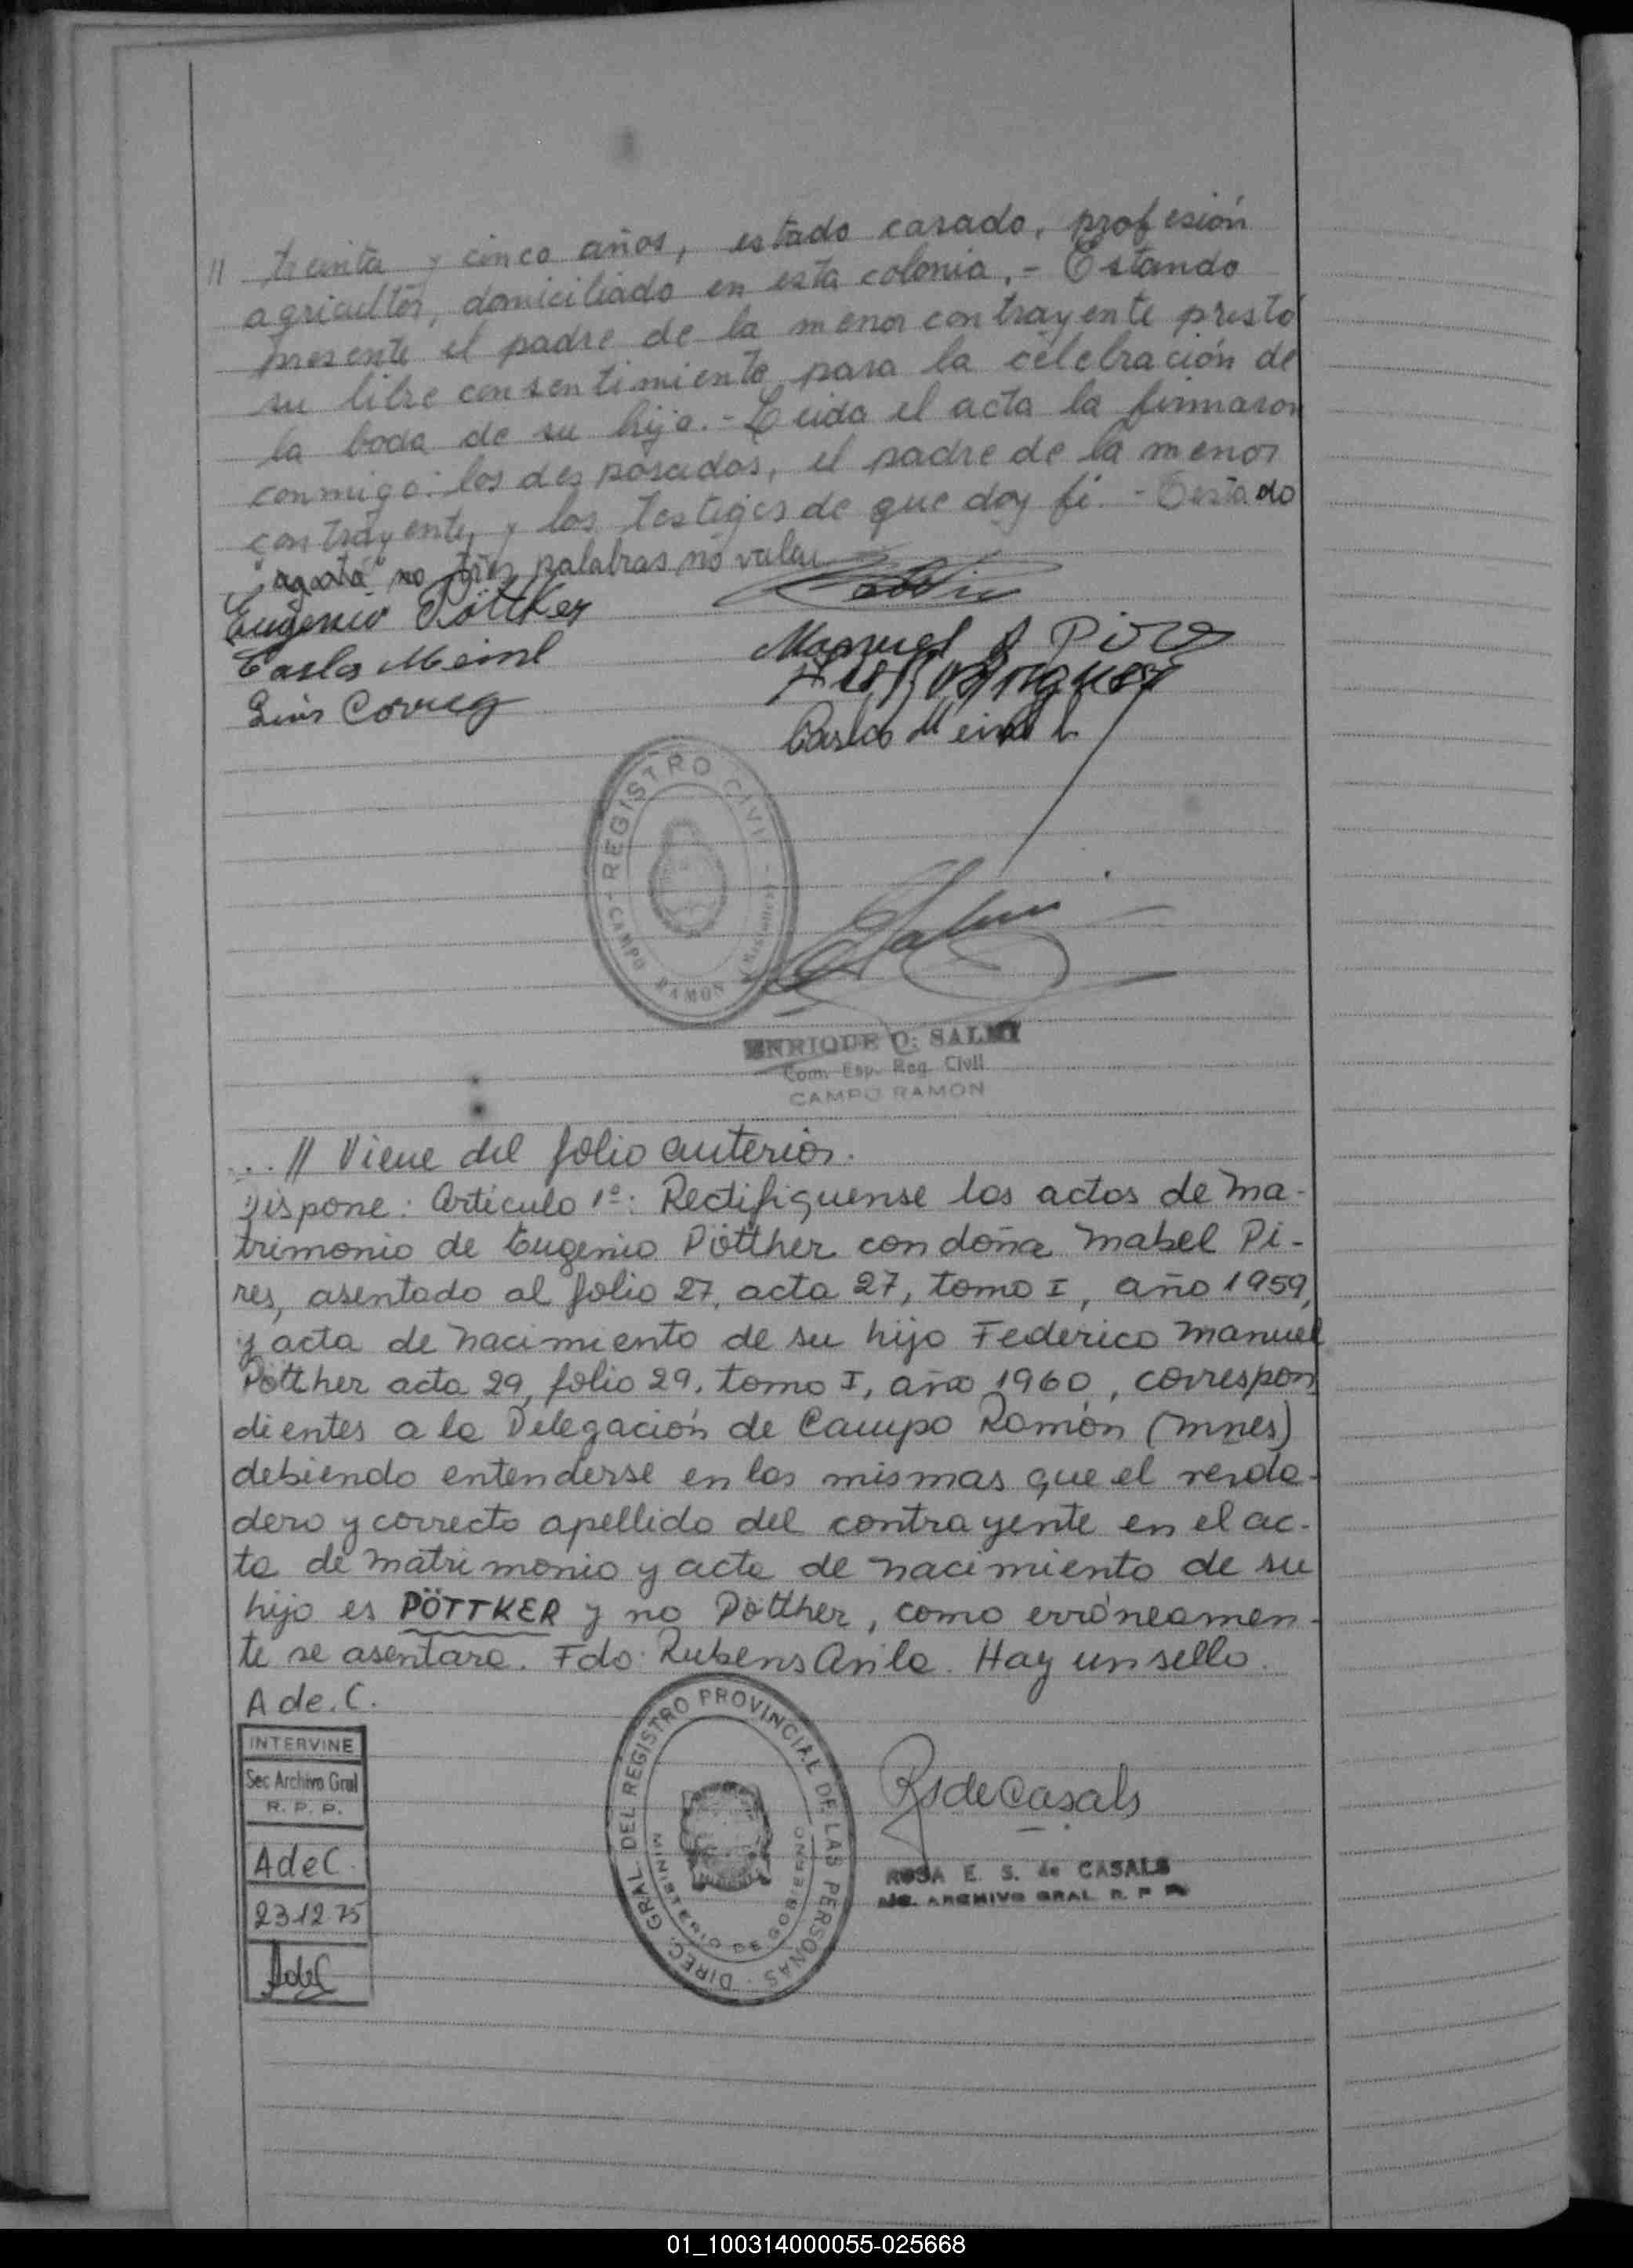 // treinta y cinco años, estado casado, profesión
agricultor, domiciliado en esta colonia.- Estando
presente el padre de la menor contrayente prestó
su libre consentimiento para la celebración de
la boda de su hija.- Leida el acta la firmaron
conmigo: los desposados, el padre de la menor
contrayente, y los testigos de que doy fé.- Testado
no tres palabras no valen
Eugenio Pöttker
Manuel A Pires
Carlos Meinl
Rodriguez
Luis Correa
Carlos Meinl
REGISTRO CIVIL
CAMPO RAMON
ENRIQUE O. SALMI
Com. Esp. Reg. Civil
CAMPO RAMON
... // Viene del folio anterior.
Dispone: Artículo 1º: Rectifiquense las actas de Ma-
trimonio de Eugenio Pötther con doña Mabel Pi-
res, asentado al folio 27, acta 27, tomo I, año 1959,
y acta de nacimiento de su hijo Federico Manuel
Pötther acta 29, folio 29, tomo I, año 1960, correspon
dientes a la Delegación de Campo Ramón (Mnes)
debiendo entenderse en las mismas que el verda-
dero y correcto apellido del contrayente en el ac-
ta de Matrimonio y acta de nacimiento de su
hijo es PÖTTKER y no Pötther, como erróneamen-
te se asentara. Fdo: Rubens Avila. Hay un sello.
A de C.
INTERVINE
Sec Archivo Gral
R. P. P.
A de C.
23.12.75
AdeC
DIREC. GRAL. DEL REGISTRO PROVINCIAL DE LAS PERSONAS
MINISTERIO DE GOBIERNO
RS de Casals
ROSA E. S. de CASALS
ARCHIVO GRAL. R. P. P.
01_100314000055-025668